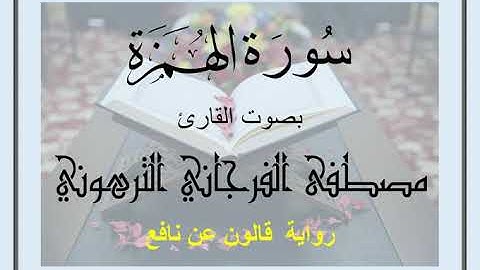 سُورَة الهُمَزَة
بصوت القارئ
مصطفى الفرجاني الترهوني
رواية قالون عن نافع